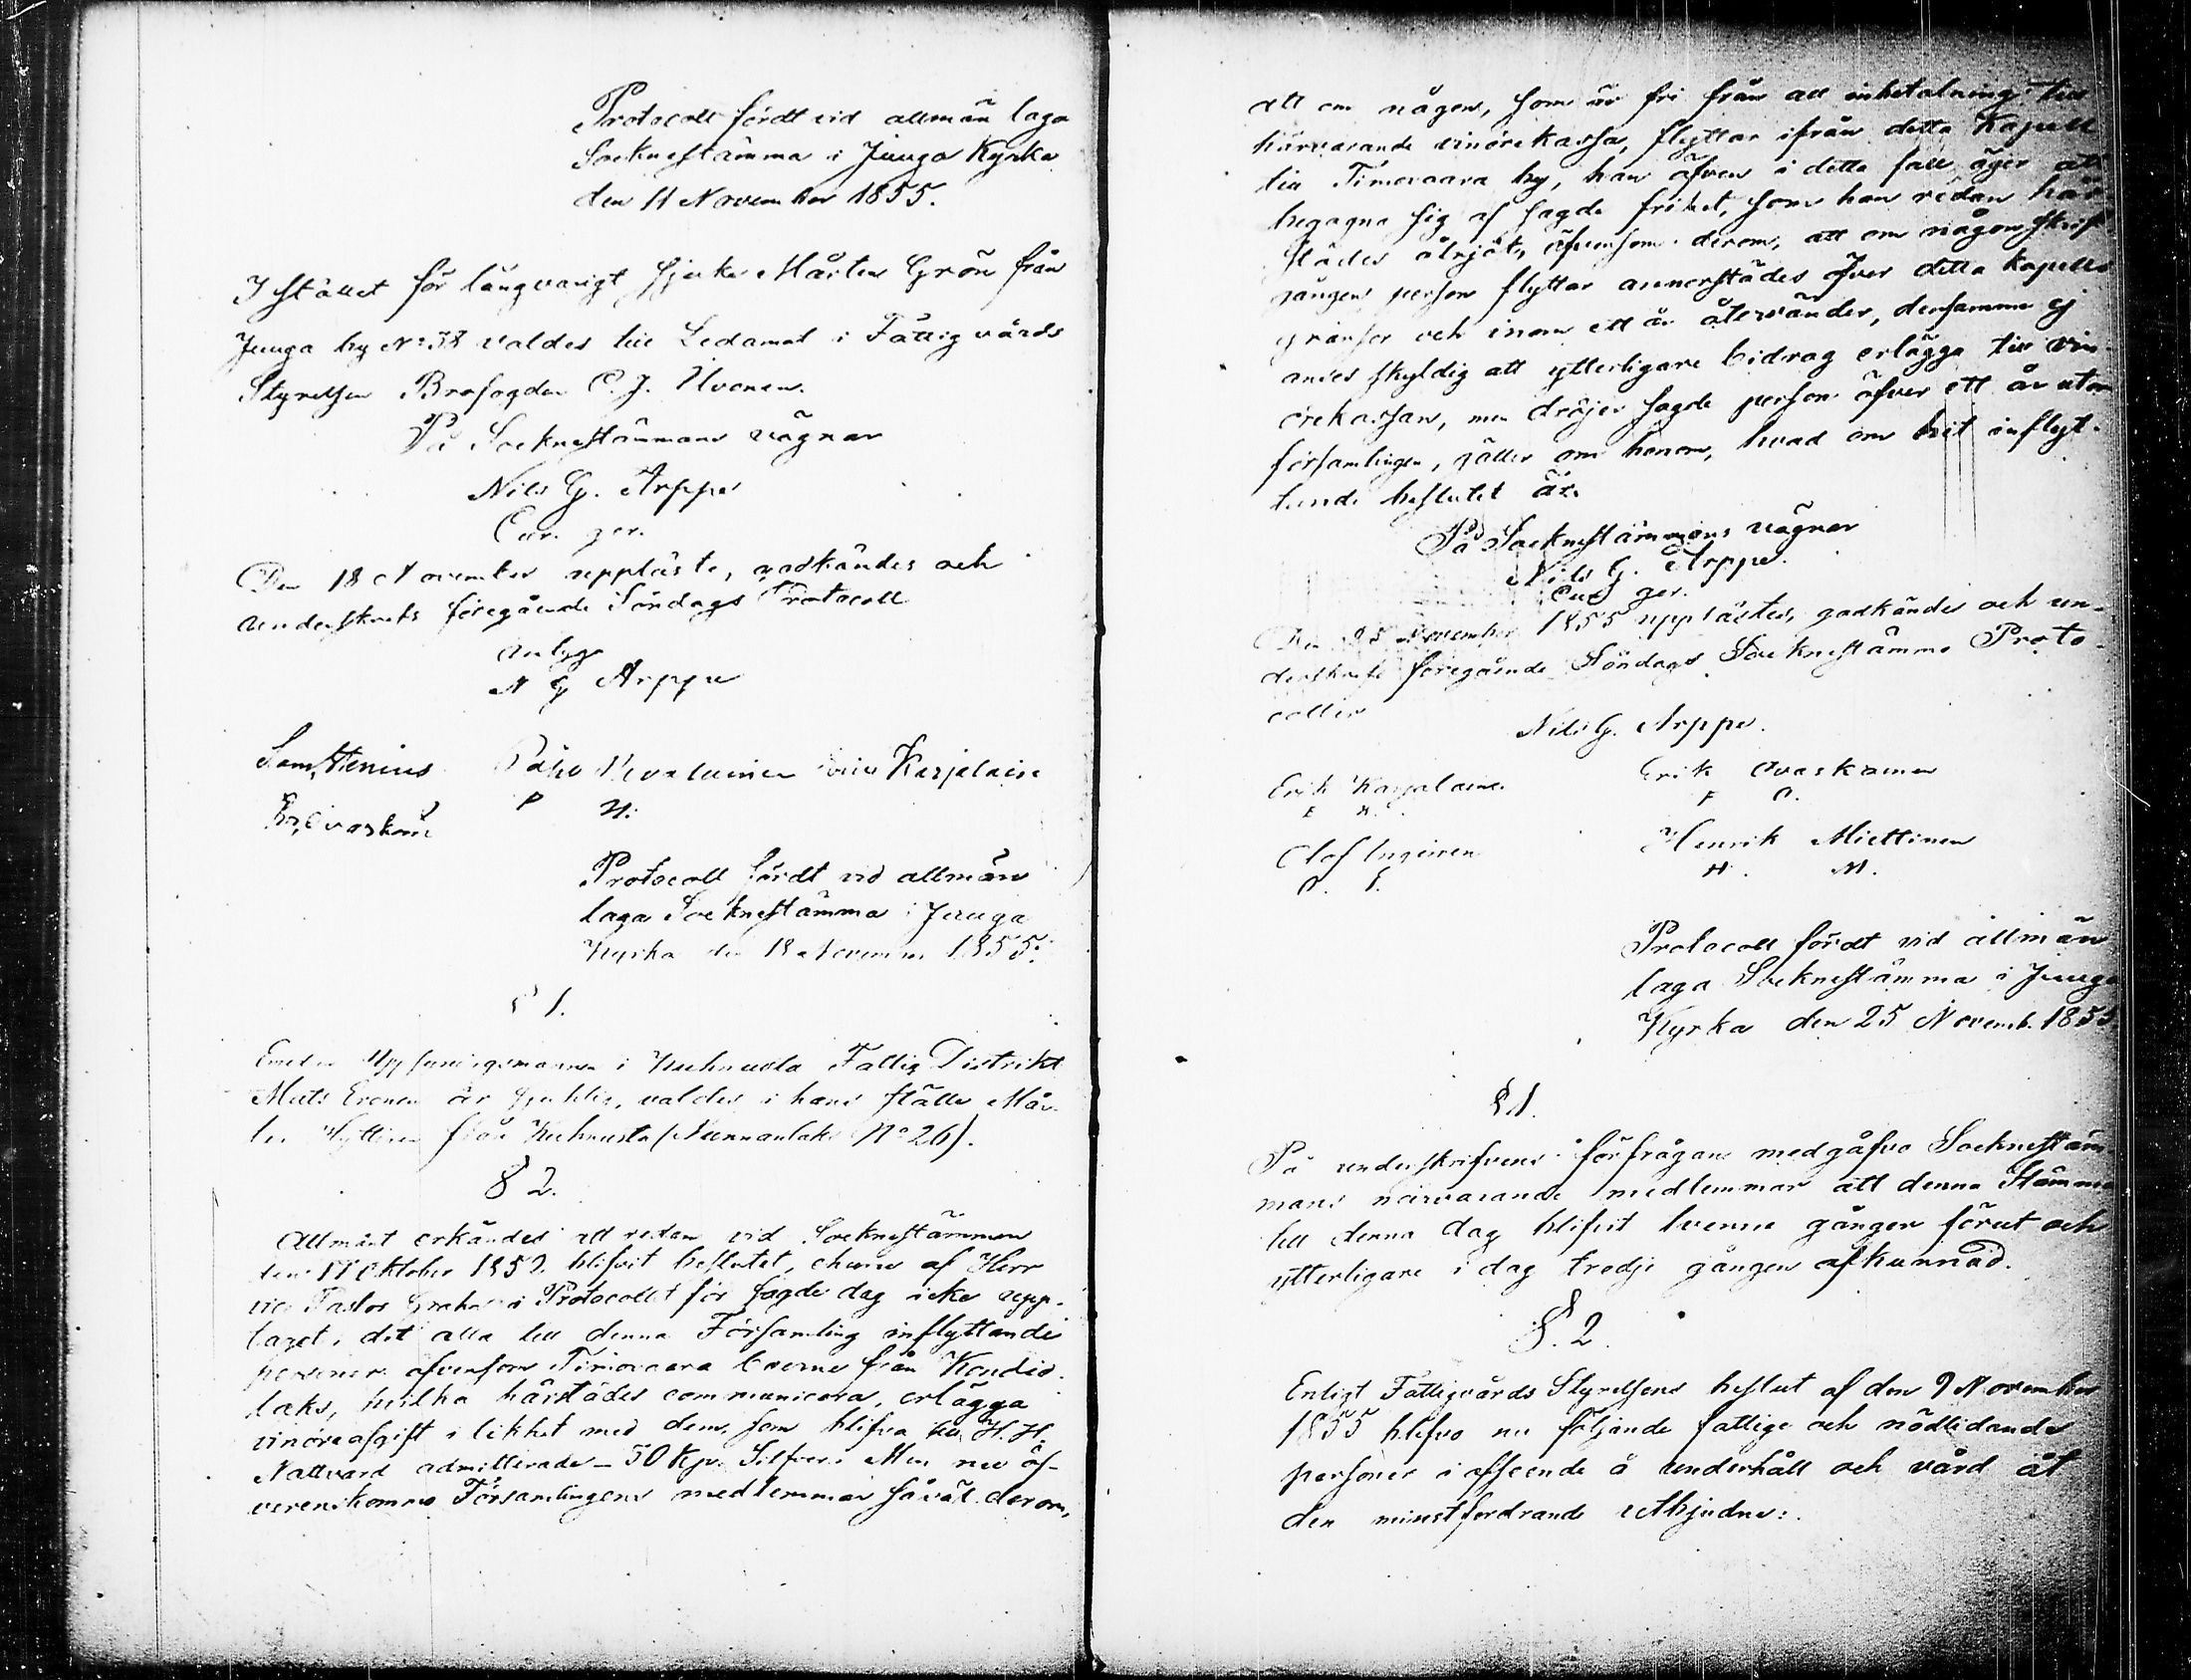 Protocoll fördt vid allmän laga
Sockne stämma i Juuga Kyrka
den 11 November 1855.
I stället för långvarigt sjuke Mårten Grön från
Juuga by No 38 valdes till Ledamot i Fattigvårds
Styrelsen Brofogden C. J. Uvonen.
På Socknestämmans vägnar
Nils G. Arppe
Cur. ger.
Den 18 November uppläste, godkändes och
underskrefs föregående Söndags Protocoll
N G Arppe
Sam. Henius
P N.
Protocoll fördt vid allmän
laga Socknestämma i Juuga
Kyrka den 18 November 1855.
§ 1.
Emedan Uppsyningsmannen i Kuhnusta Fattig Distrikt
Mats Eronen är sjuklig, valdes i hans ställe Mår-
ten Hyttinen från Kuhnusta (Nunnanlaks No 26).
§ 2.
Allmänt erkändes att redan vid Socknestämman
den 17 Oktober 1852 blifvit beslutet, ehuru af Herr
vice Pastor i Protocollet för sagde dag icke upp-
taget, det alla till denna Församling inflyttande
personer äfvensom Timovaara boerne från Kondio-
laks, hvilka härstädes communicera, erlägga
vinöreafgift i likhet med dem, som blifva till H. H.
Nattvard admitterade – 50 Kp. Silfver. Men nu öf-
verenskomma Församlingens medlemmar såväl derom,
att om någon, som är fri från all inbetalning till
härvarande vinörekassa, flyttar ifrån detta Kapell
till Timovaara by, han äfven i detta fall äger att
begagna sig af sagde frihet, som han redan här-
städes åtnjöt, äfvensom derom, att om någon skrif-
gången person flyttar annorstädes öfver detta kapells
gränser och inom ett år återvänder, densamme ej
anses skyldig att ytterligare bidrag erlägga till vin-
örekassan, men dröjer sagde person öfver ett år utom
församlingen, gäller om honom, hvad om hit inflyt-
tande beslutet är.
På Socknestämmans vägnar
Nils G. Arppe.
Cur ger.
Den 25 November 1855 upplästes, godkändes och un-
derskrefs föregående Söndags Socknestämmo Proto-
coller
Nils G. Arppe.
Erik Karjalainen
E K.
Erik Ovaskainen
E O.
Olof Ingeinen
O. I.
Henrik Miettinen
H. M.
Protocoll fördt vid allmän
laga Socknestämma i Juuga
Kyrka den 25 Novemb. 1855
§ 1.
På underskrifvens förfrågan medgåfvo Socknestäm-
mans närvarande medlemmar att denna Stämma
till denna dag blifvit tvenne gånger förut och
ytterligare i dag tredje gången afkunnad.
§. 2.
Enligt Fattigvårds Styrelsens beslut af den 9 November
1855 blefvo nu följande fattige och nödlidande
personer i afseende å underhåll och vård åt
den minstfordrande utbjudne: